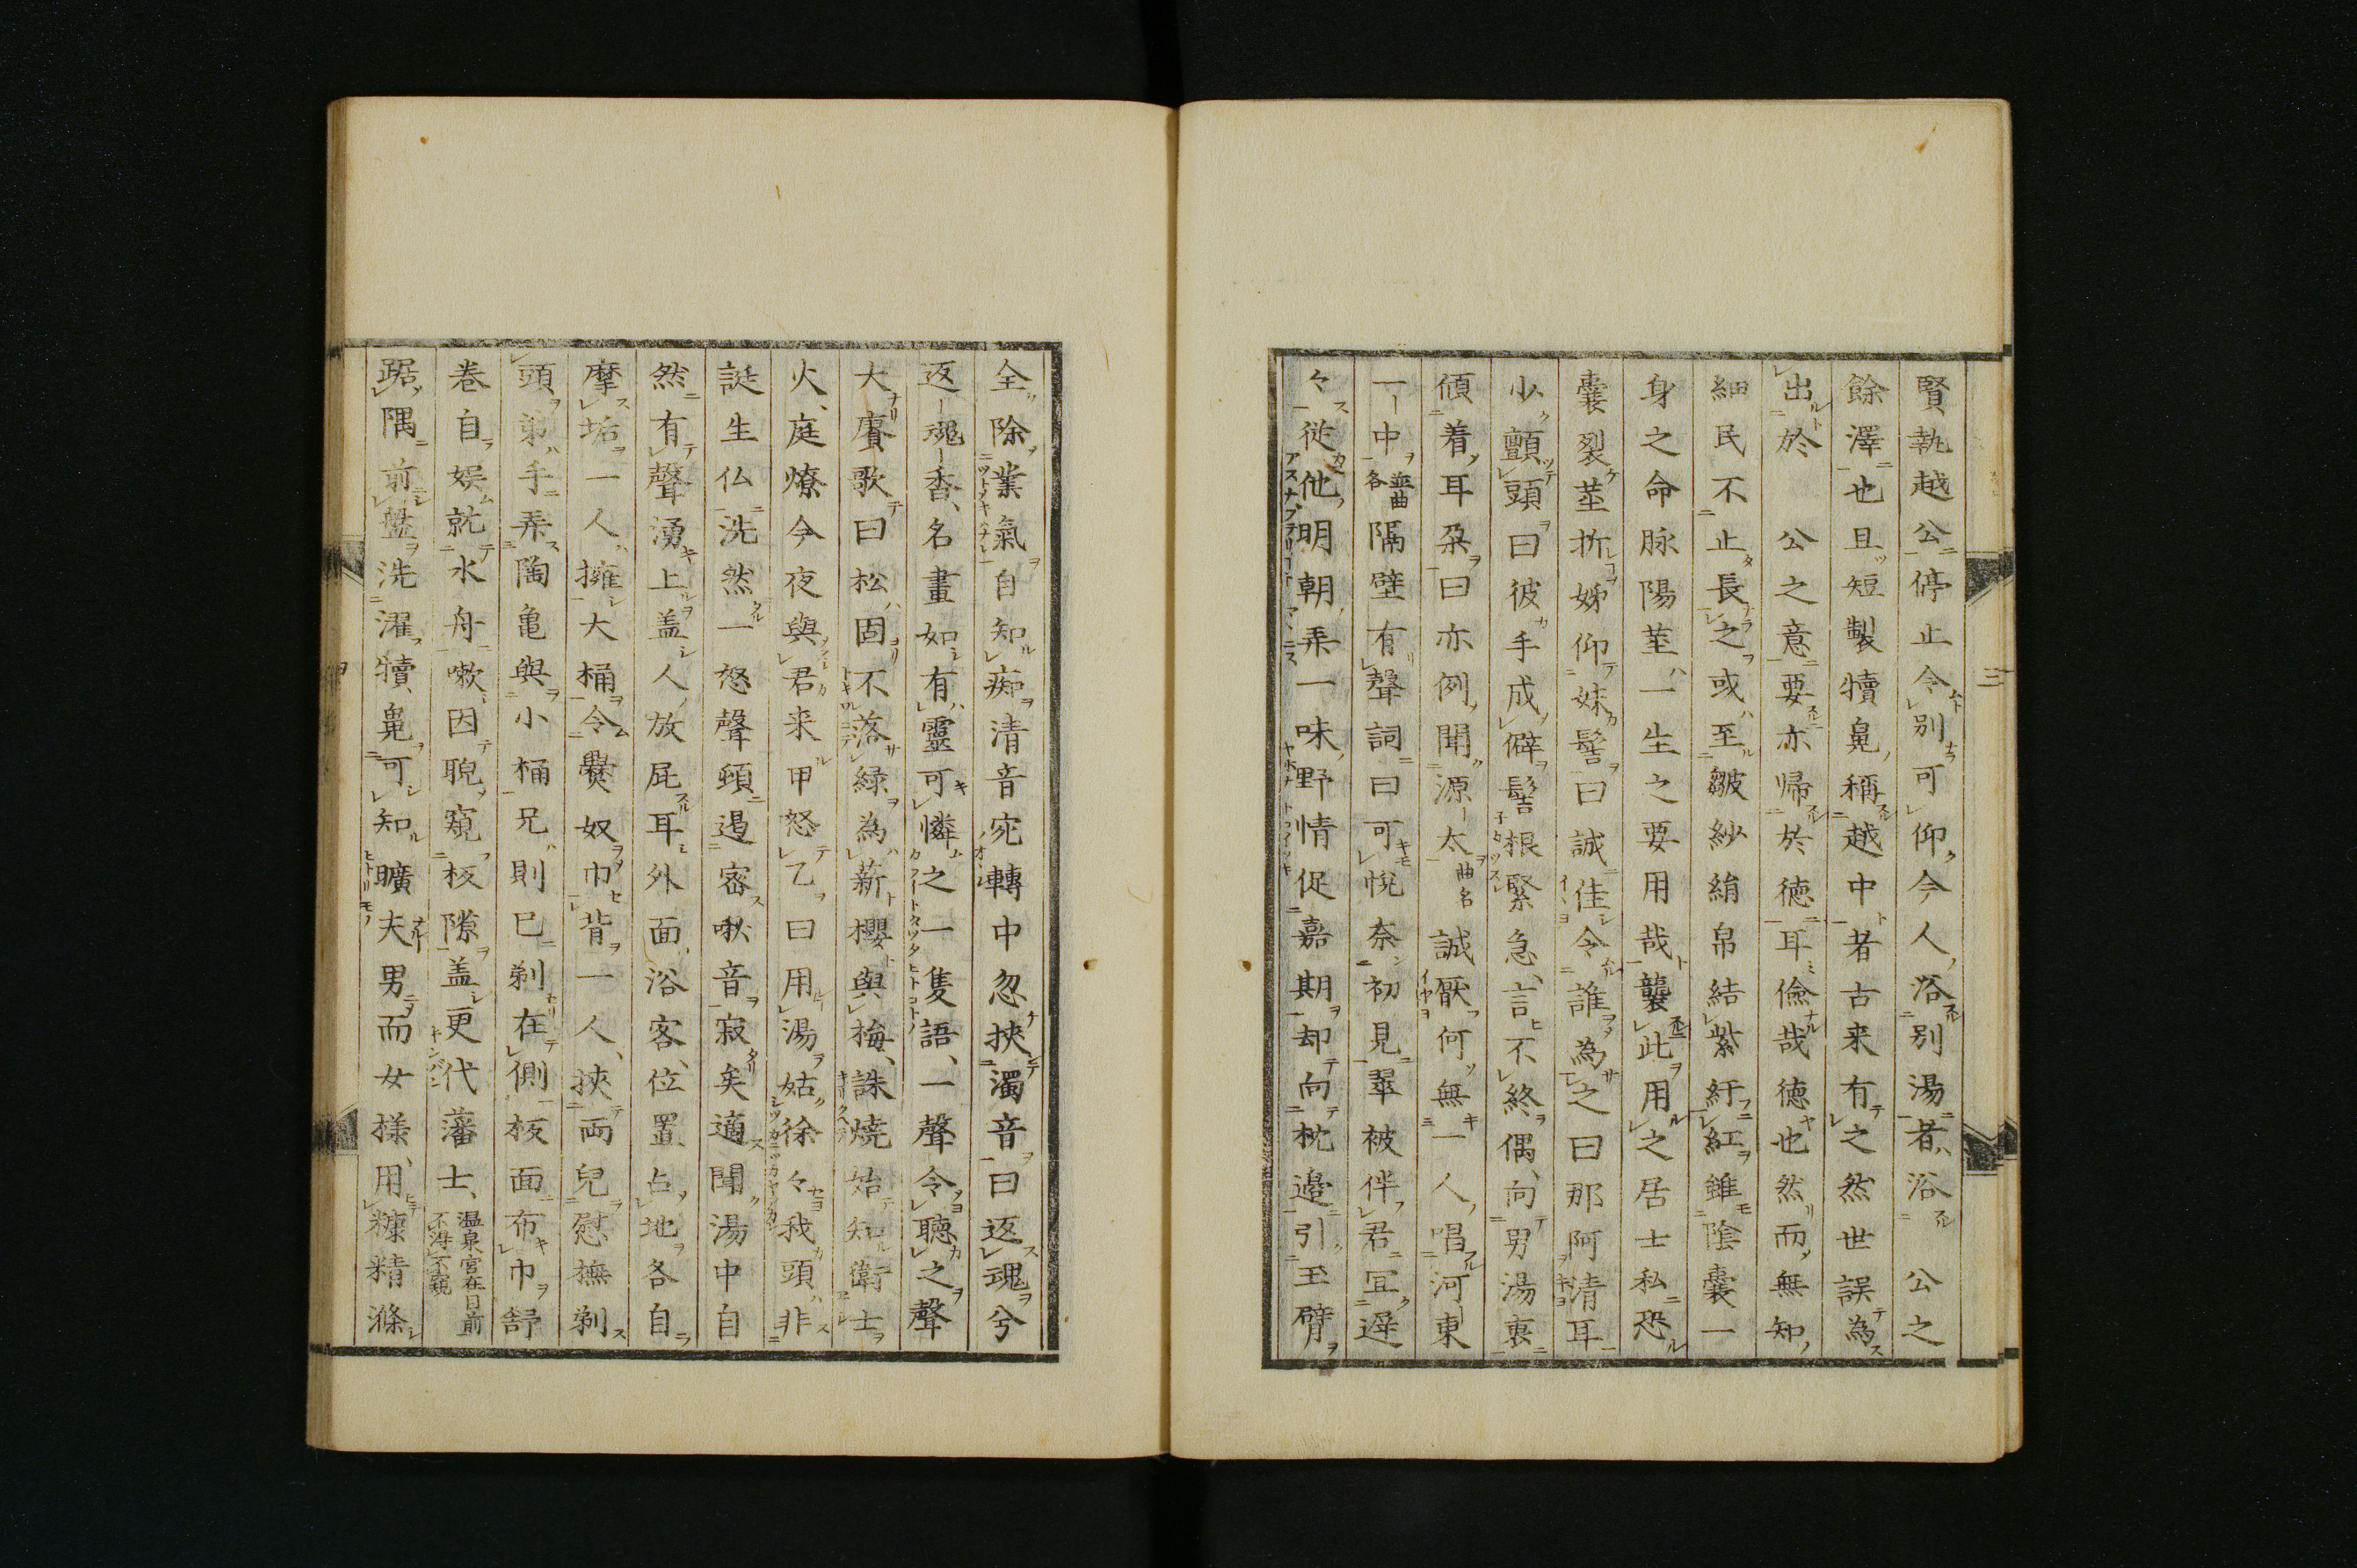 賢執越公停止令別可仰今人浴別湯者浴公之
餘澤也且短製犢鼻稱越中者古来有之然世誤為
出於　公之意要亦帰於徳耳儉哉徳也然而無知
細民不止長之或至皺紗絹帛結紫紆紅雖陰嚢一
身之命脉陽莖一生之要用哉襲此用之居士私恐
嚢裂莖折姊仰妹髻曰誠佳令誰為之曰那阿清耳
少顫頭曰彼手成僻髻根緊急言不終偶向男湯裏
傾着耳朶曰亦例聞源太曲名誠厭何無一人唱河東
一中並曲各隔壁有聲詞曰可悅奈初見翠被伴君宜遅
々従他明朝弄一味野情促嘉期却向枕邉引玉臂
全除業氣自知痴清音宛轉中忽挾濁音曰返魂兮
返魂香名畫如有靈可憐之一隻語一聲令聴之聲
大賡歌曰松固不落緑為薪櫻與梅誅焼始知衛士
火庭燎今夜與君来甲怒乙曰用湯姑徐々我頭非
誕生仏洗然一怒聲頓遏密啾音寂矣適聞湯中自
然有聲湧上盖人放屁耳外面浴客位置占地各自
摩垢一人擁大桶令爨奴巾背一人挾両兒慰撫剃
頭弟手弄陶亀與小桶兄則已剃在側板面布巾舒
巻自娯就水舟嗽因睨窺板隙盖更代藩士温泉宮在目前不得不窺
踞隅前盤洗濯犢鼻可知曠夫男而女様用糠精滌